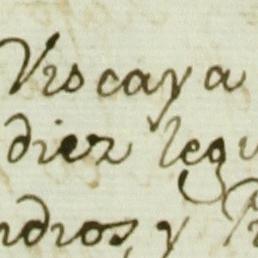 Viscaya
diez legu
ndios, y